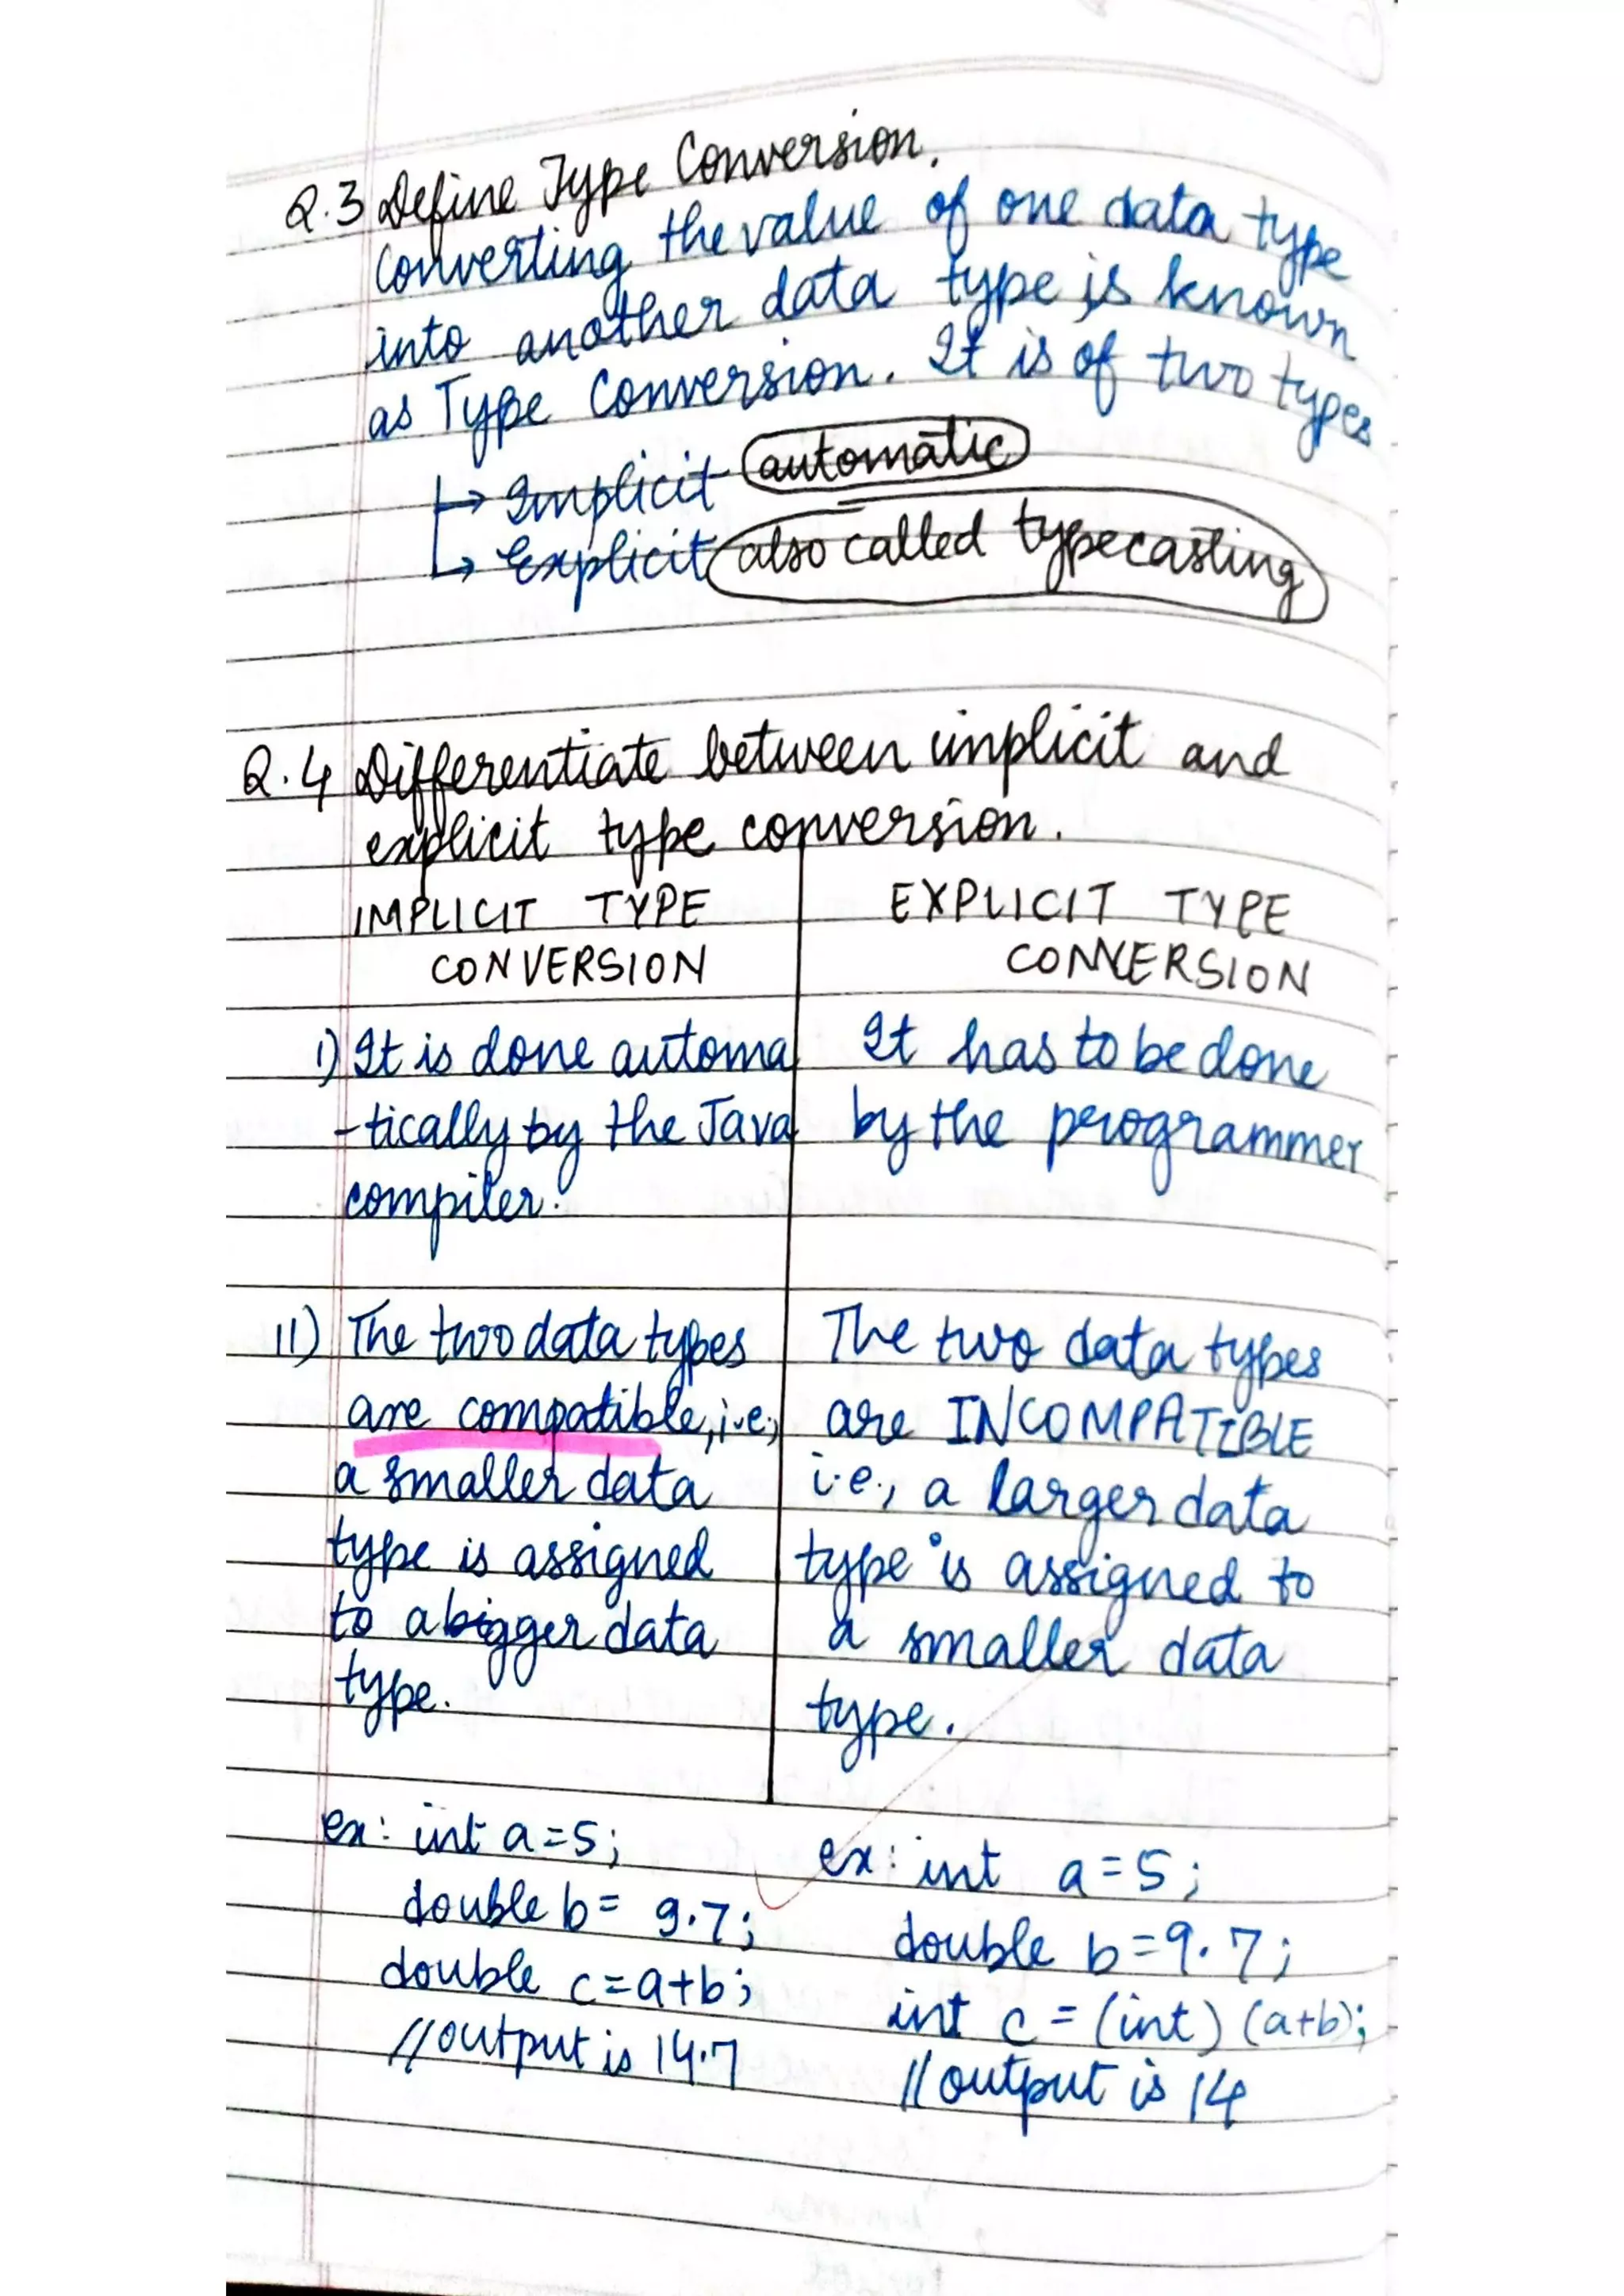 Q.3 Define Type Conversion.
Converting the value of one data type
into another data type is known
as Type Conversion. It is of two types
→ Implicit automatic
→ Explicit also called typecasting
Q.4 Differentiate between implicit and
explicit type conversion.
IMPLICIT TYPE
CONVERSION
i) It is done automa
-tically by the Java
compiler.
ii) The two data types
are compatible, i.e.,
a smaller data
type is assigned
to a bigger data
type.
ex: int a=5;
double b= 9.7;
double c=a+b;
//output is 14.7
EXPLICIT TYPE
CONVERSION
It has to be done
by the programmer
The two data types
are INCOMPATIBLE
i.e., a larger data
type is assigned to
a smaller data
type.
ex: int a=5;
double b=9.7;
int c = (int) (a+b);
//output is 14